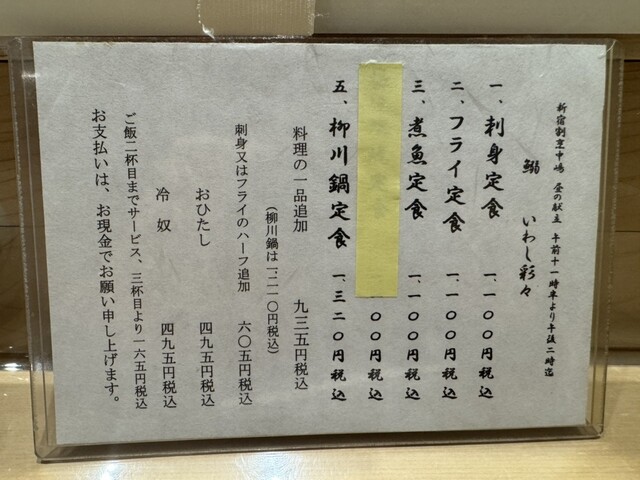 新宿割烹中嶋 昼の献立 午前十一時半より午後二時迄
鰯 いわし彩々
一、刺身定食 一、一〇〇円税込
二、フライ定食 一、一〇〇円税込
三、煮魚定食 一、一〇〇円税込
〇〇円税込
五、柳川鍋定食 一、三二〇円税込
料理の一品追加 九三五円税込
(柳川鍋は一、二一〇円税込)
刺身又はフライのハーフ追加 六〇五円税込
おひたし 四九五円税込
冷奴 四九五円税込
ご飯二杯目までサービス、三杯目より一六五円税込
お支払いは、お現金でお願い申し上げます。